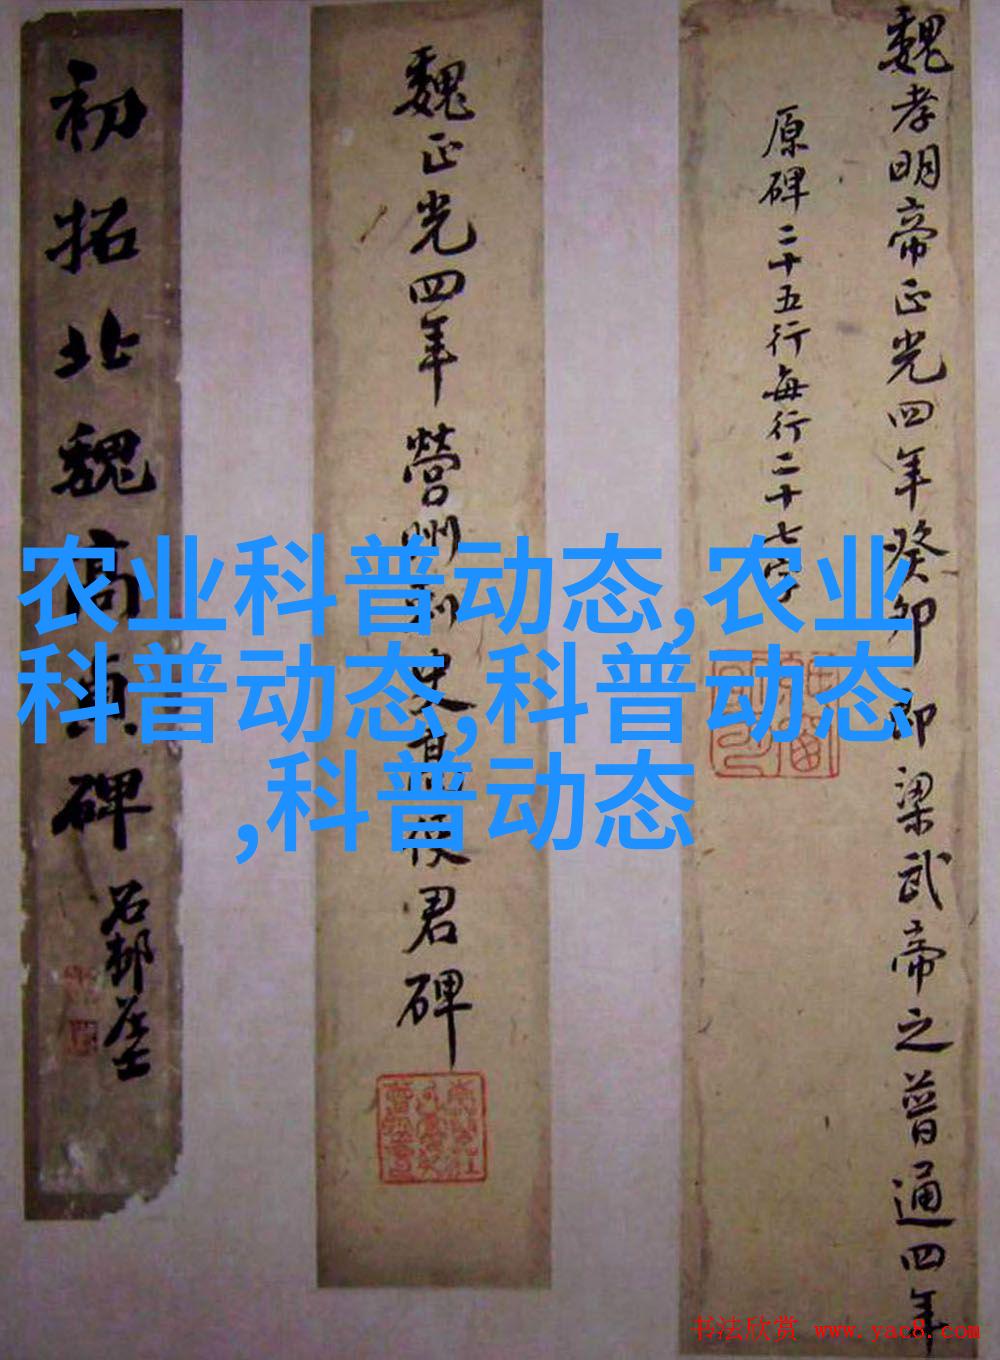 魏孝明帝正光四年癸卯即梁武帝之普通四年
原碑二十五行每行二十七字
魏正光四年營州刺史高使君碑
初拓北魏高貞碑
石邨居士
农业科普动态,农业
科普动态,科普动态
,科普动态
书法欣赏 www.yac8.com